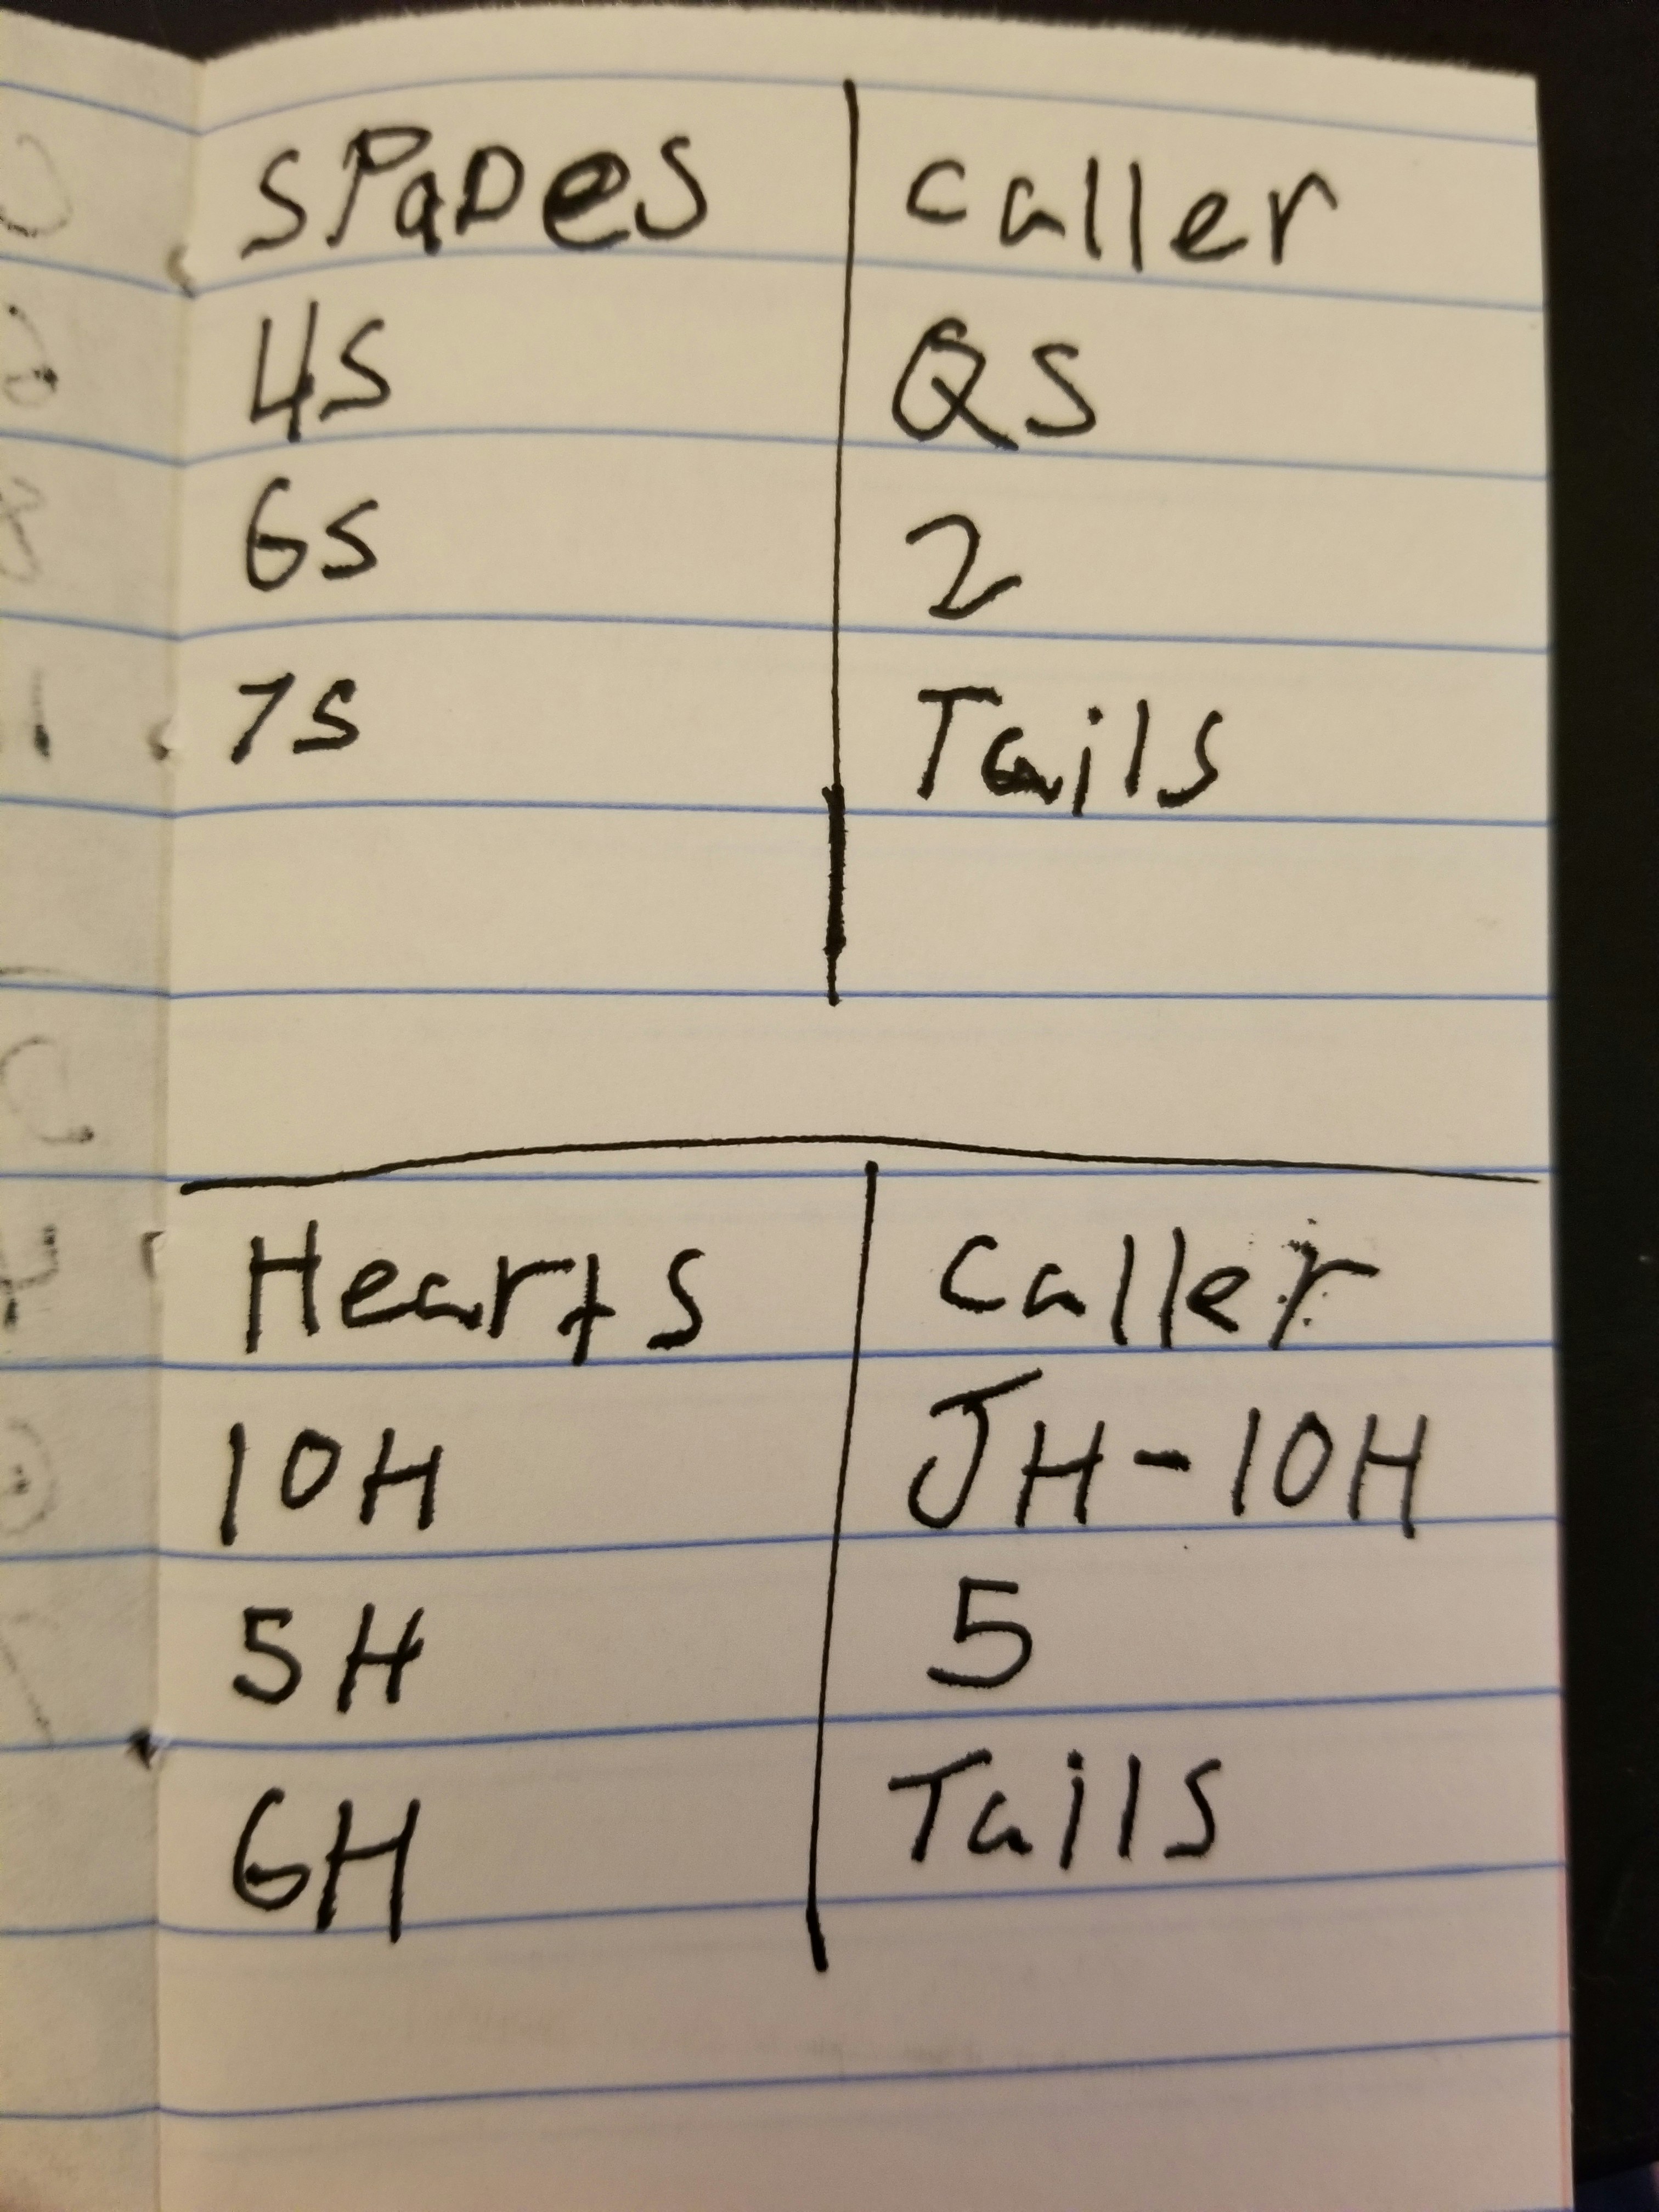 SPaDeS caller
4S QS
6S 2
7S Tails
Hearts caller
10H JH-10H
5H 5
6H Tails